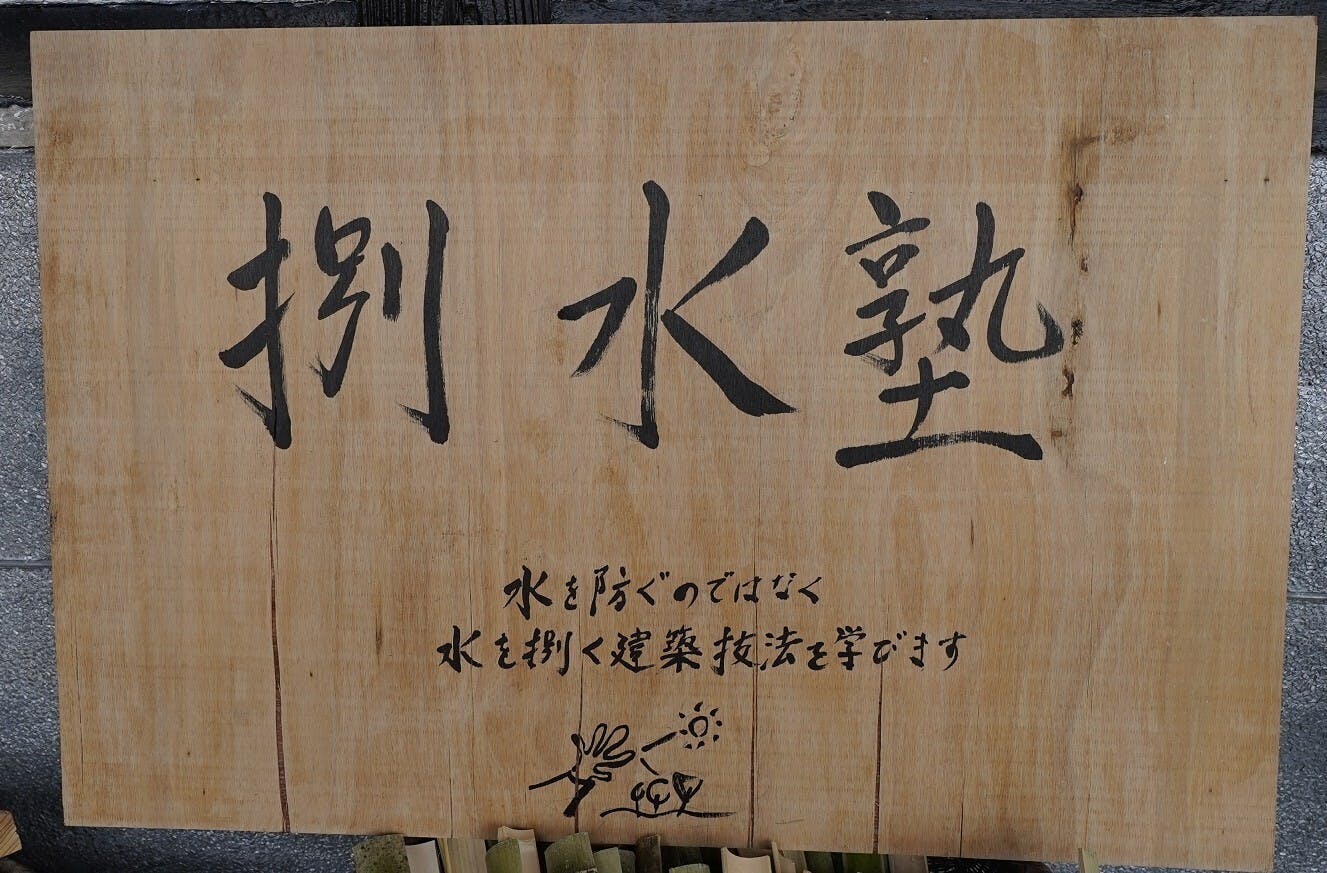 捌水塾
水を防ぐのではなく
水を捌く建築技法を学びます